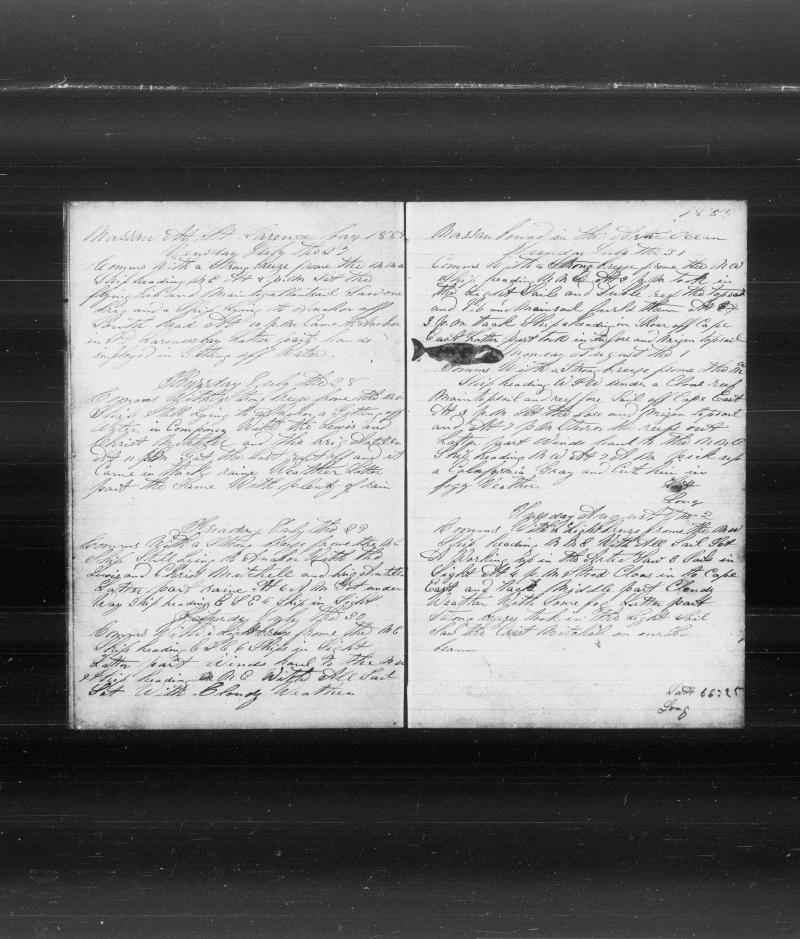 At St Larence bay 1859
July the 27
Comms With a Strong breeze frome the
Ship heading At 8 p.m. Set the
flying Jib and Main Saw one
brig and a Ship lying to anchor off
South head At 10 p.m. Came to anchor
in St Larence bay Latter part hands
employed in Getting off Water
Thursday July the 28
Comms With a Strong breeze frome the
Ship Still lying to anchor Getting off
Water in Company With the Lewis and
Christ Mitchell and the brig
At 11 Got the last raft off and it
Came in thick raine Weather Latter
part the Same With plenty of rain
Friday July the 29
Comms With a Strong breeze frome the N E
Ship Still lying to Anchor With the
Lewis and Christ Mitchell and brig
Latter part raine At 6 A M Got under
way Ship heading E S E a Ship in Sight
Saturday July the 30
Comms With a light breeze frome the N E
Ship heading 6 Ships in Sight
Latter part Winds hauld to the
Ship heading N E With All Sail
Set With Cloudy Weather
1859
bound in the Artic Ocean
Sunday July the 31
Comms With a Strong breeze frome the N W
Ship heading N N E At 8 p.m. took in
the Light Sails and Duble reef the topsail
and Jib and Mainsail furld them At
3 p.m. tack Ship heading on Shore off Cape
East Latter part took in the fore and Mizen topsail
Monday August the 1
Comms With a Strong breeze frome the N
Ship heading W N W under a Close reef
Maintopsail and reef fore Sail off Cape East
At 3 p.m. Set the fore and Mizen topsail
and At 7 p.m. turn the reefs out
Latter part Winds hauld to the N N E
Ship heading N W At 7 A M pick up
a Calafornia Gray and Cut him in
foggy Weather
Latt
Long
August the 2
Comms With a Light breeze frome the N W
Ship heading N N E With All Sail Set
Working up in the Artic Saw 6 Sail in
Sight At 4 p.m. Stood Close in to Cape
East and tack Middle part Cloudy
Weather With Some fog Latter part
Strong breeze took in the Light Sail
Saw the Crist Mitchell on our
beam
Latt 66:25
Long